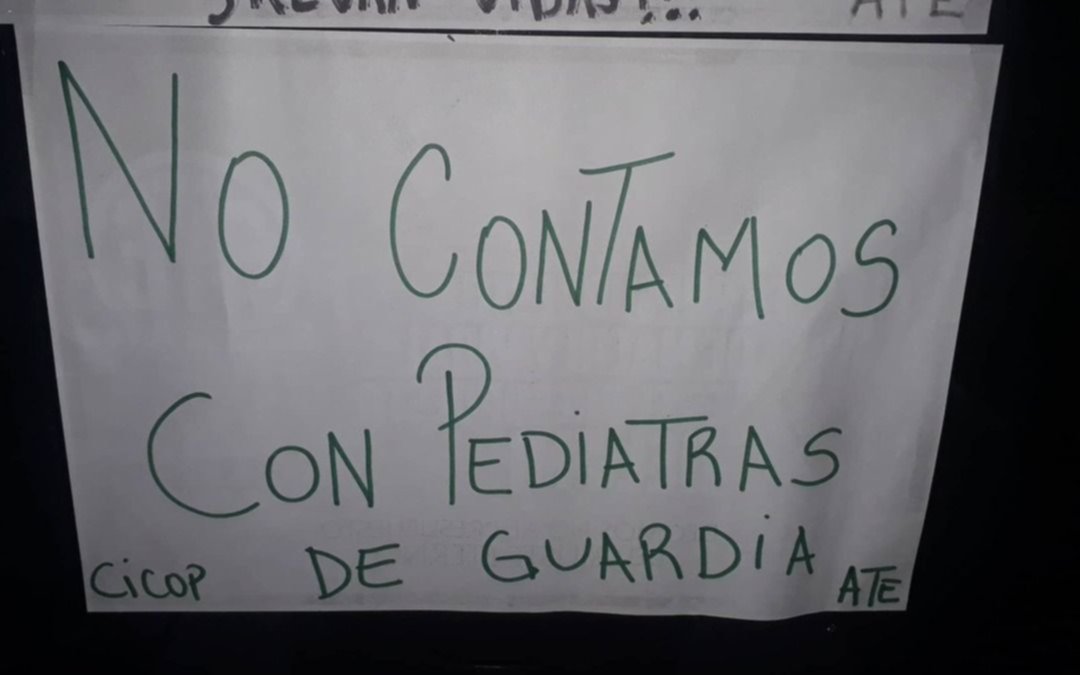 VIDAS!... ATE
NO CONTAMOS
CON PEDIATRAS
DE GUARDIA
CiCOP ATE